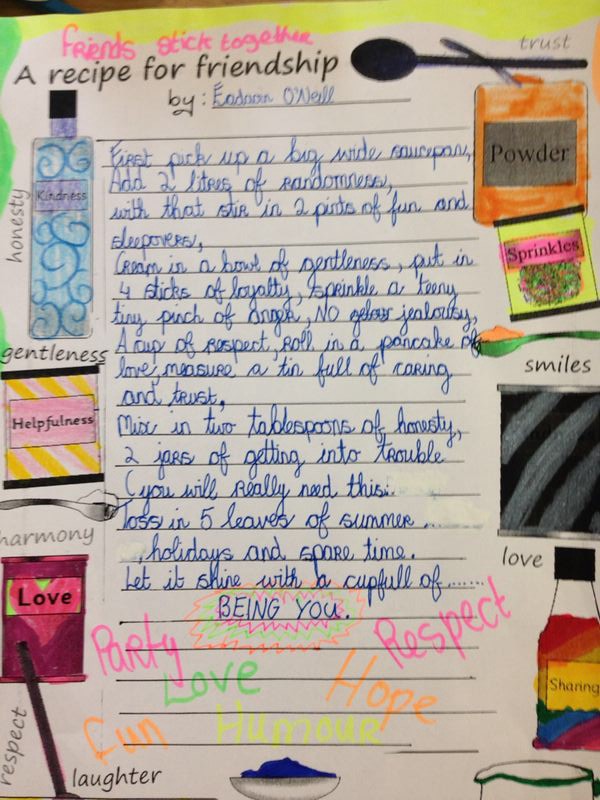 friends stick together
A recipe for friendship
trust
by: Éadaoin O'Neill
honesty
Kindness
Powder
Sprinkles
First pick up a big wide saucepan,
Add 2 litres of randomness,
with that stir in 2 pints of fun and
sleepovers,
Cream in a bowl of gentleness, put in
4 sticks of loyalty, sprinkle a teeny
tiny pinch of anger, NO jealousy,
A cup of respect, roll in a pancake of
love, measure a tin full of caring
and trust,
Mix in two tablespoons of honesty,
2 jars of getting into trouble
(you will really need this..
toss in 5 leaves of summer ....
holidays and spare time.
Let it shine with a cupfull of......
BEING YOU.
gentleness
smiles
Helpfulness
harmony
love
Love
Sharing
Party
Respect
Love
Hope
Fun
Humour
respect
laughter